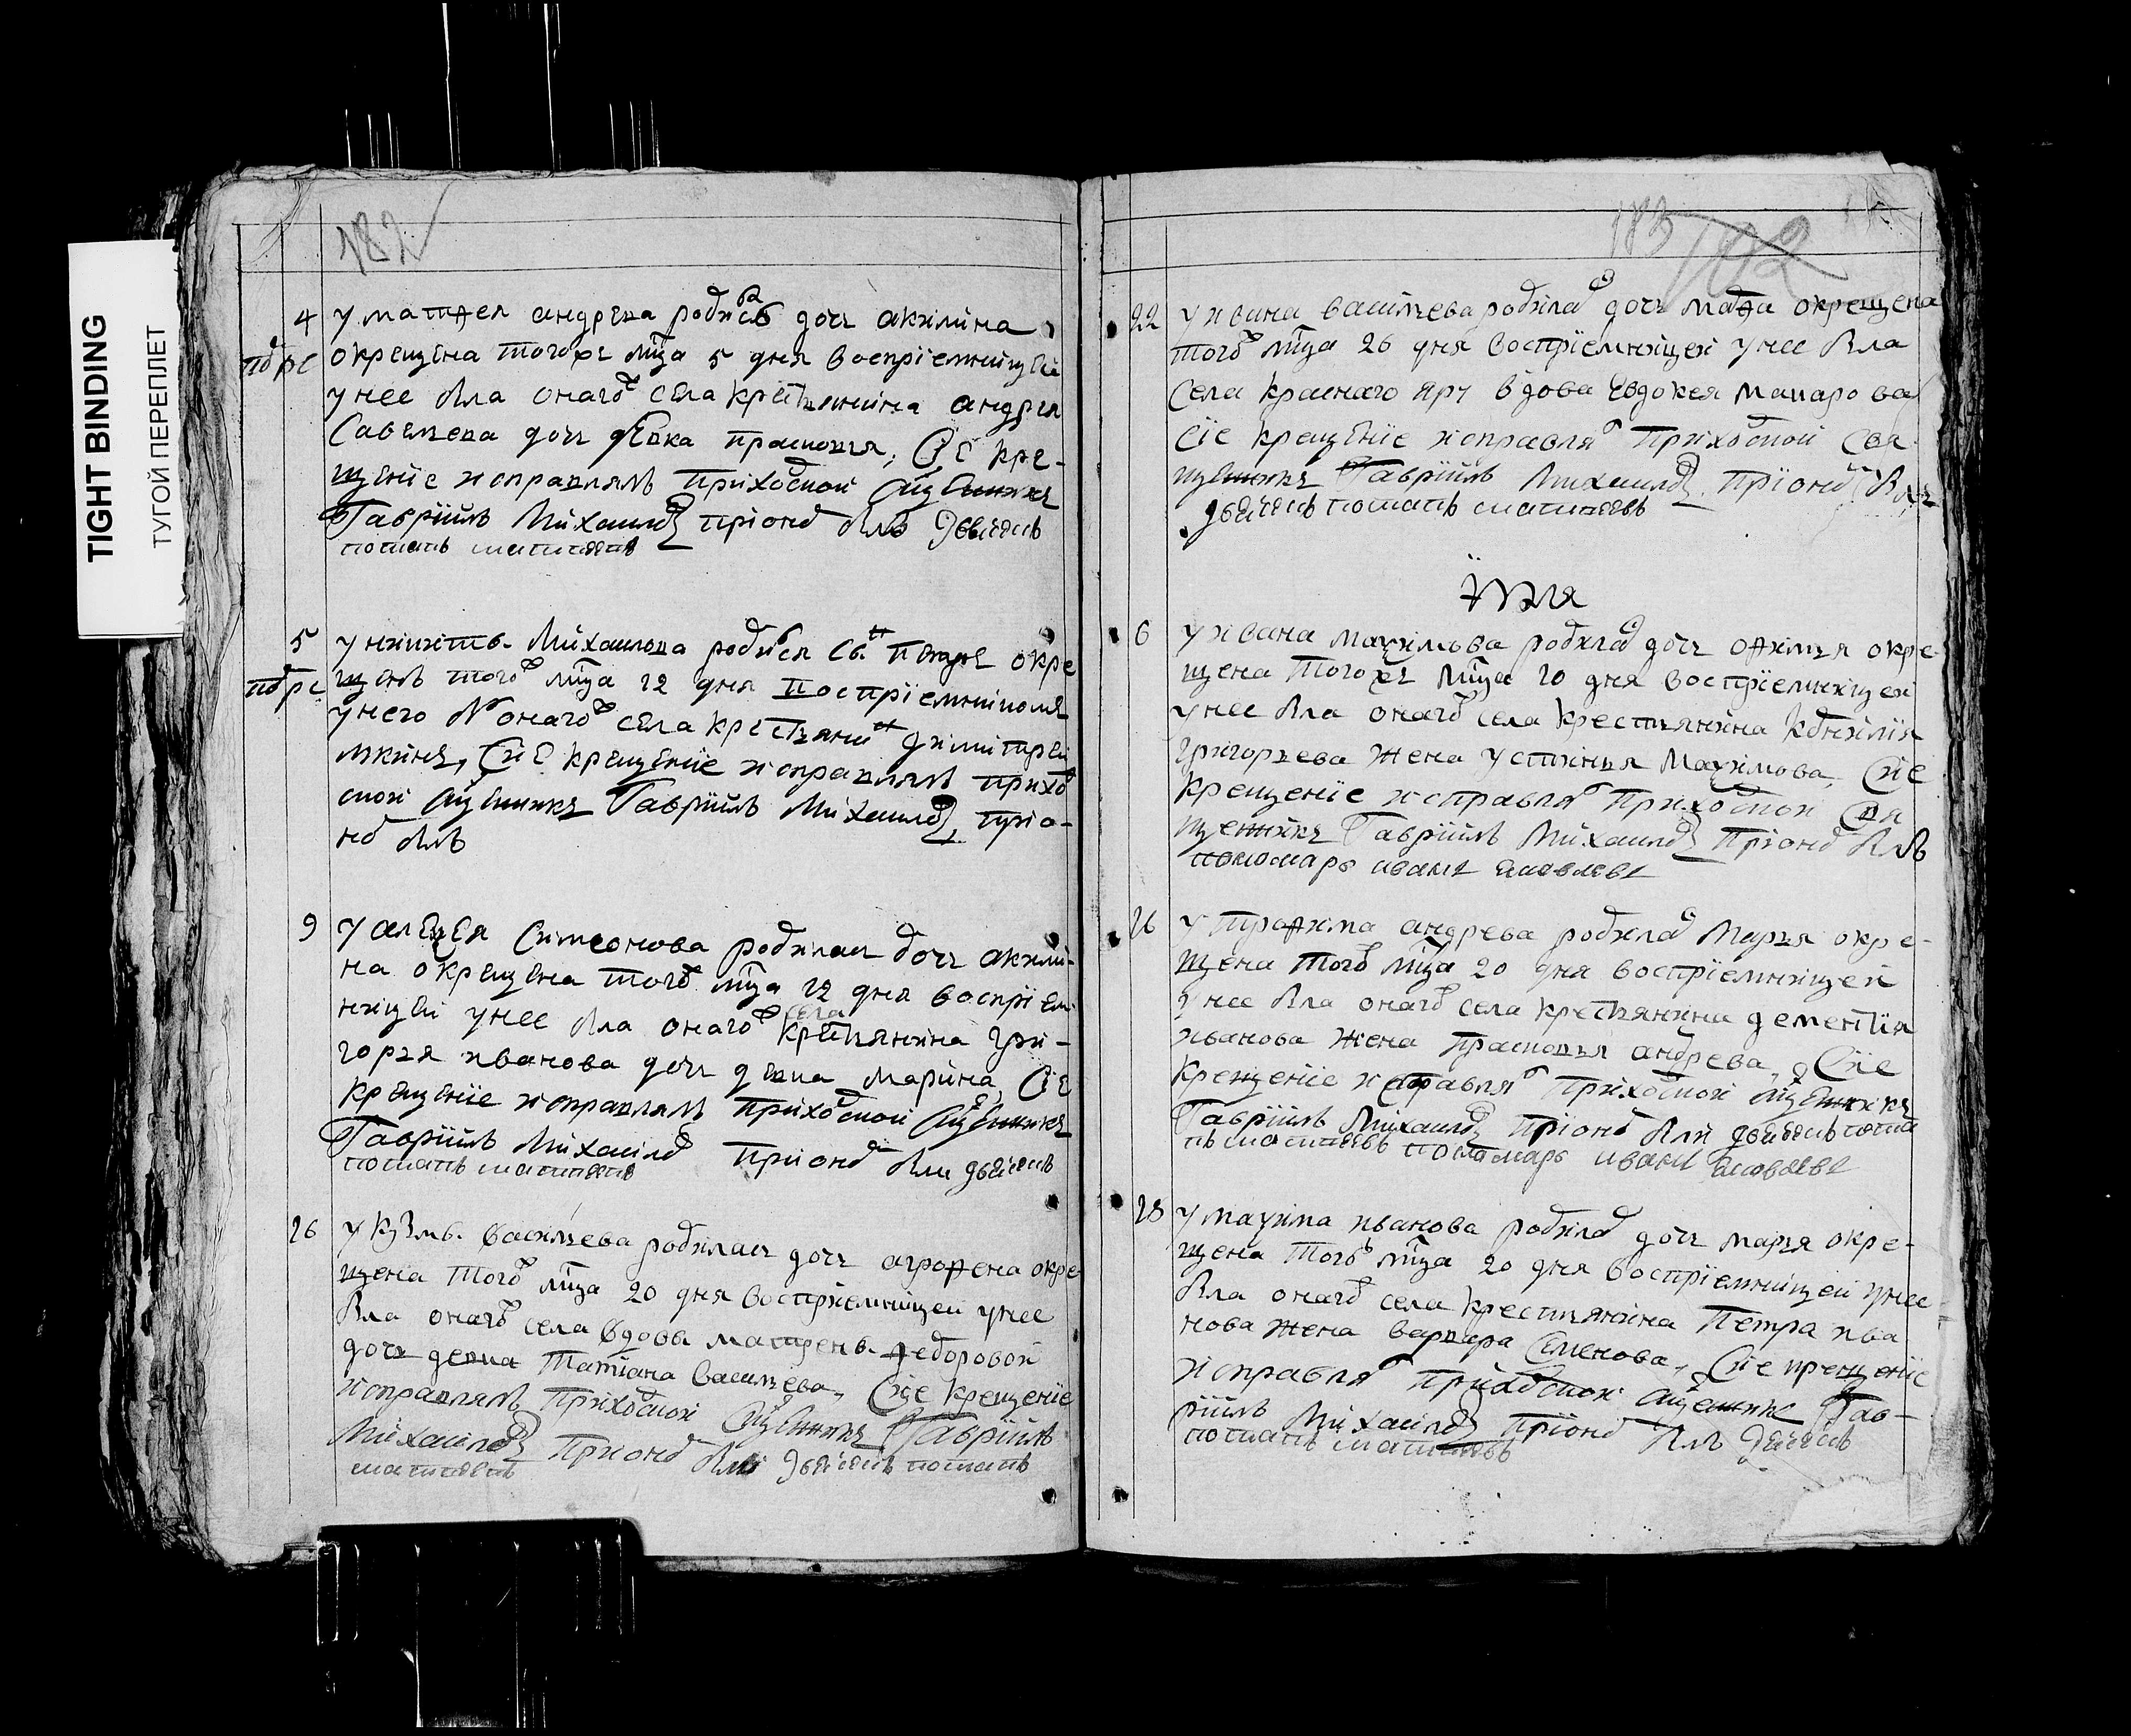 TIGHT BINDING
ТУГОЙ ПЕРЕПЛЕТ
182
4 У матфея андреева дочь акилина
окрещена тогожъ мца 5 дня воспрiемницеи
у нее была онагѡ села крестьянина андрея
Савельева дочь девка прасковья, Сiе кре-
щенiе исправлялъ приходскои сщенникъ
Гаврiилъ Михаиловъ приономъ былъ
5 У никиты Михаилова родился снъ окре
щенъ тогож мца 12 дня воспрiемникомъ
у него онагож села крестьянинъ димитреи
Сие крещенiе исправлялъ приход
скои сщенникъ Гаврiилъ Михаиловъ, прио-
номъ былъ
9 У алеѯея Симеонова родилась дочь акили-
на окрещена тогож мца 12 дня воспрiем
ницеи у нее была онагож села крестьянина гри-
горья иванова дочь девка марина, Сiе
крещенiе исправлялъ приходскои сщенникъ
Гаврiилъ Михаиловъ приономъ были
16 У кузмы васильева родилась дочь агрофена окре
щена тогож мца 20 дня воспрiемницеи у нее
была онагож села вдовы матрены федоровои
дочь девка Татiана васильева, Сiе крещенiе
исправлялъ приходскои сщенникъ Гаврiилъ
Михаиловъ приономъ были
183 182
22 У ивана васильева родилас дочь окрещена
тогож мца 26 дня воспрiемницеи у нее была
села краснаго яру вдова Евдокея макарова
сiе крещенiе исправлял приходскои свя-
щенникъ Гаврiилъ Михаиловъ приономъ
Iюля
6 У ивана маѯимова родилас дочь офимья окре-
щена тогожъ мца 10 дня воспрiемницеи
у нее была онагож села крестьянина корнилiя
григорьева жена устинья маѯимова, Сие
крещенiе исправлял приходскои свя
щенникъ Гаврiилъ Михаиловъ приономъ былъ
пономарь иванъ яковлевъ
16 У трофима андреева родилас Марья окре-
щена тогож мца 20 дня воспрiемницеи
у нее была онагож села крестьянина дементiя
иванова жена прасковья андреева, Сiе
крещенiе исправлял приходскои сщенникъ
Гаврiилъ Михаиловъ приономъ были
пономарь иванъ яковлевъ
18 У маѯима иванова родилас дочь марья окре-
щена тогож мца 20 дня воспрiемницеи у нее
была онагож села крестьянина Петра ива
нова жена варвара Семенова, Сiе крещенiе
исправлял приходскои сщенникъ Гав-
рiилъ Михаиловъ приономъ былъ